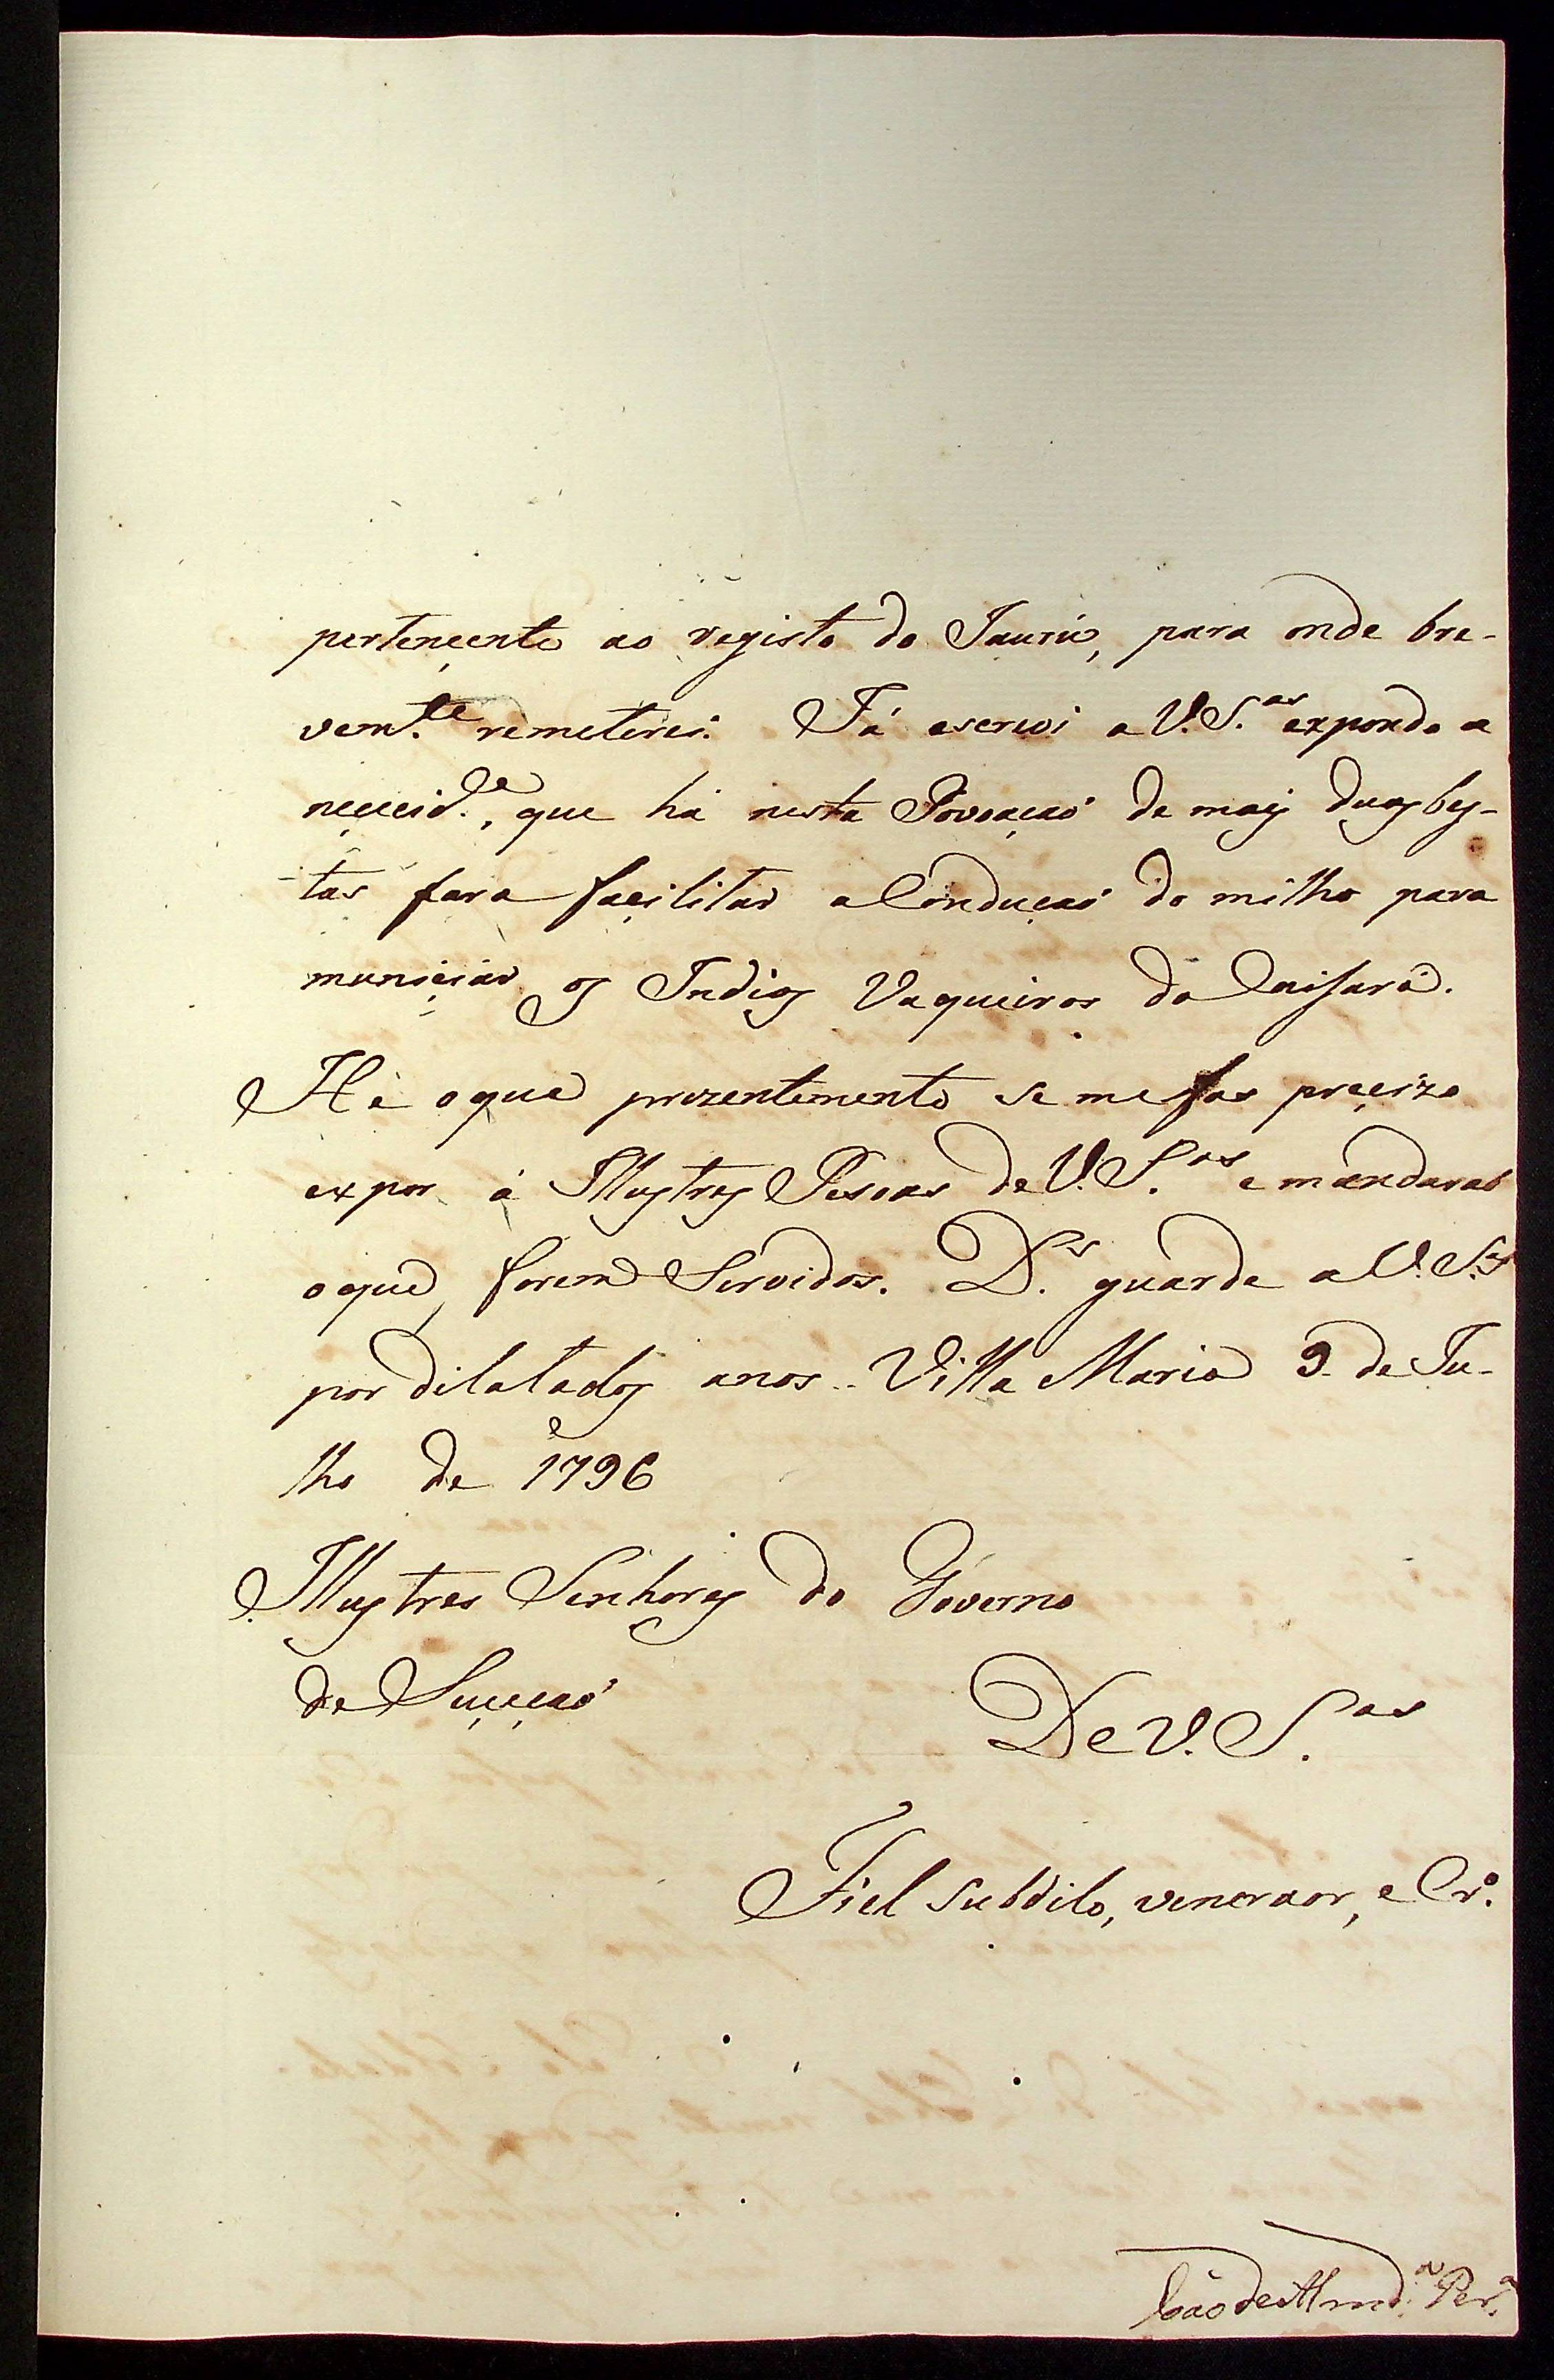 pertencente ao registo do Jaurú, para onde bre-
vem.te remeterei. Já escrevi a V.S.as expondo a
neçecid.e, que há nesta Povoaçaó de mais duas bes-
tas para façilitar a Conduçaó do milho para
muniçiar os Indios Vaqueiros da Caissara.
Hé oque prezentemente se me fas preçizo
expor á Illustres Pesoas de V.S.as e mandaraó
oque forem Servidos. D.s guarde a V.S.as
por dilatados anos.. Villa Maria 9 de Ju-
lho de 1796
Illustres Senhores do Governo
de Suçeçaó
De V.S.as
Fiel subdito, veneraor, e Cr.o